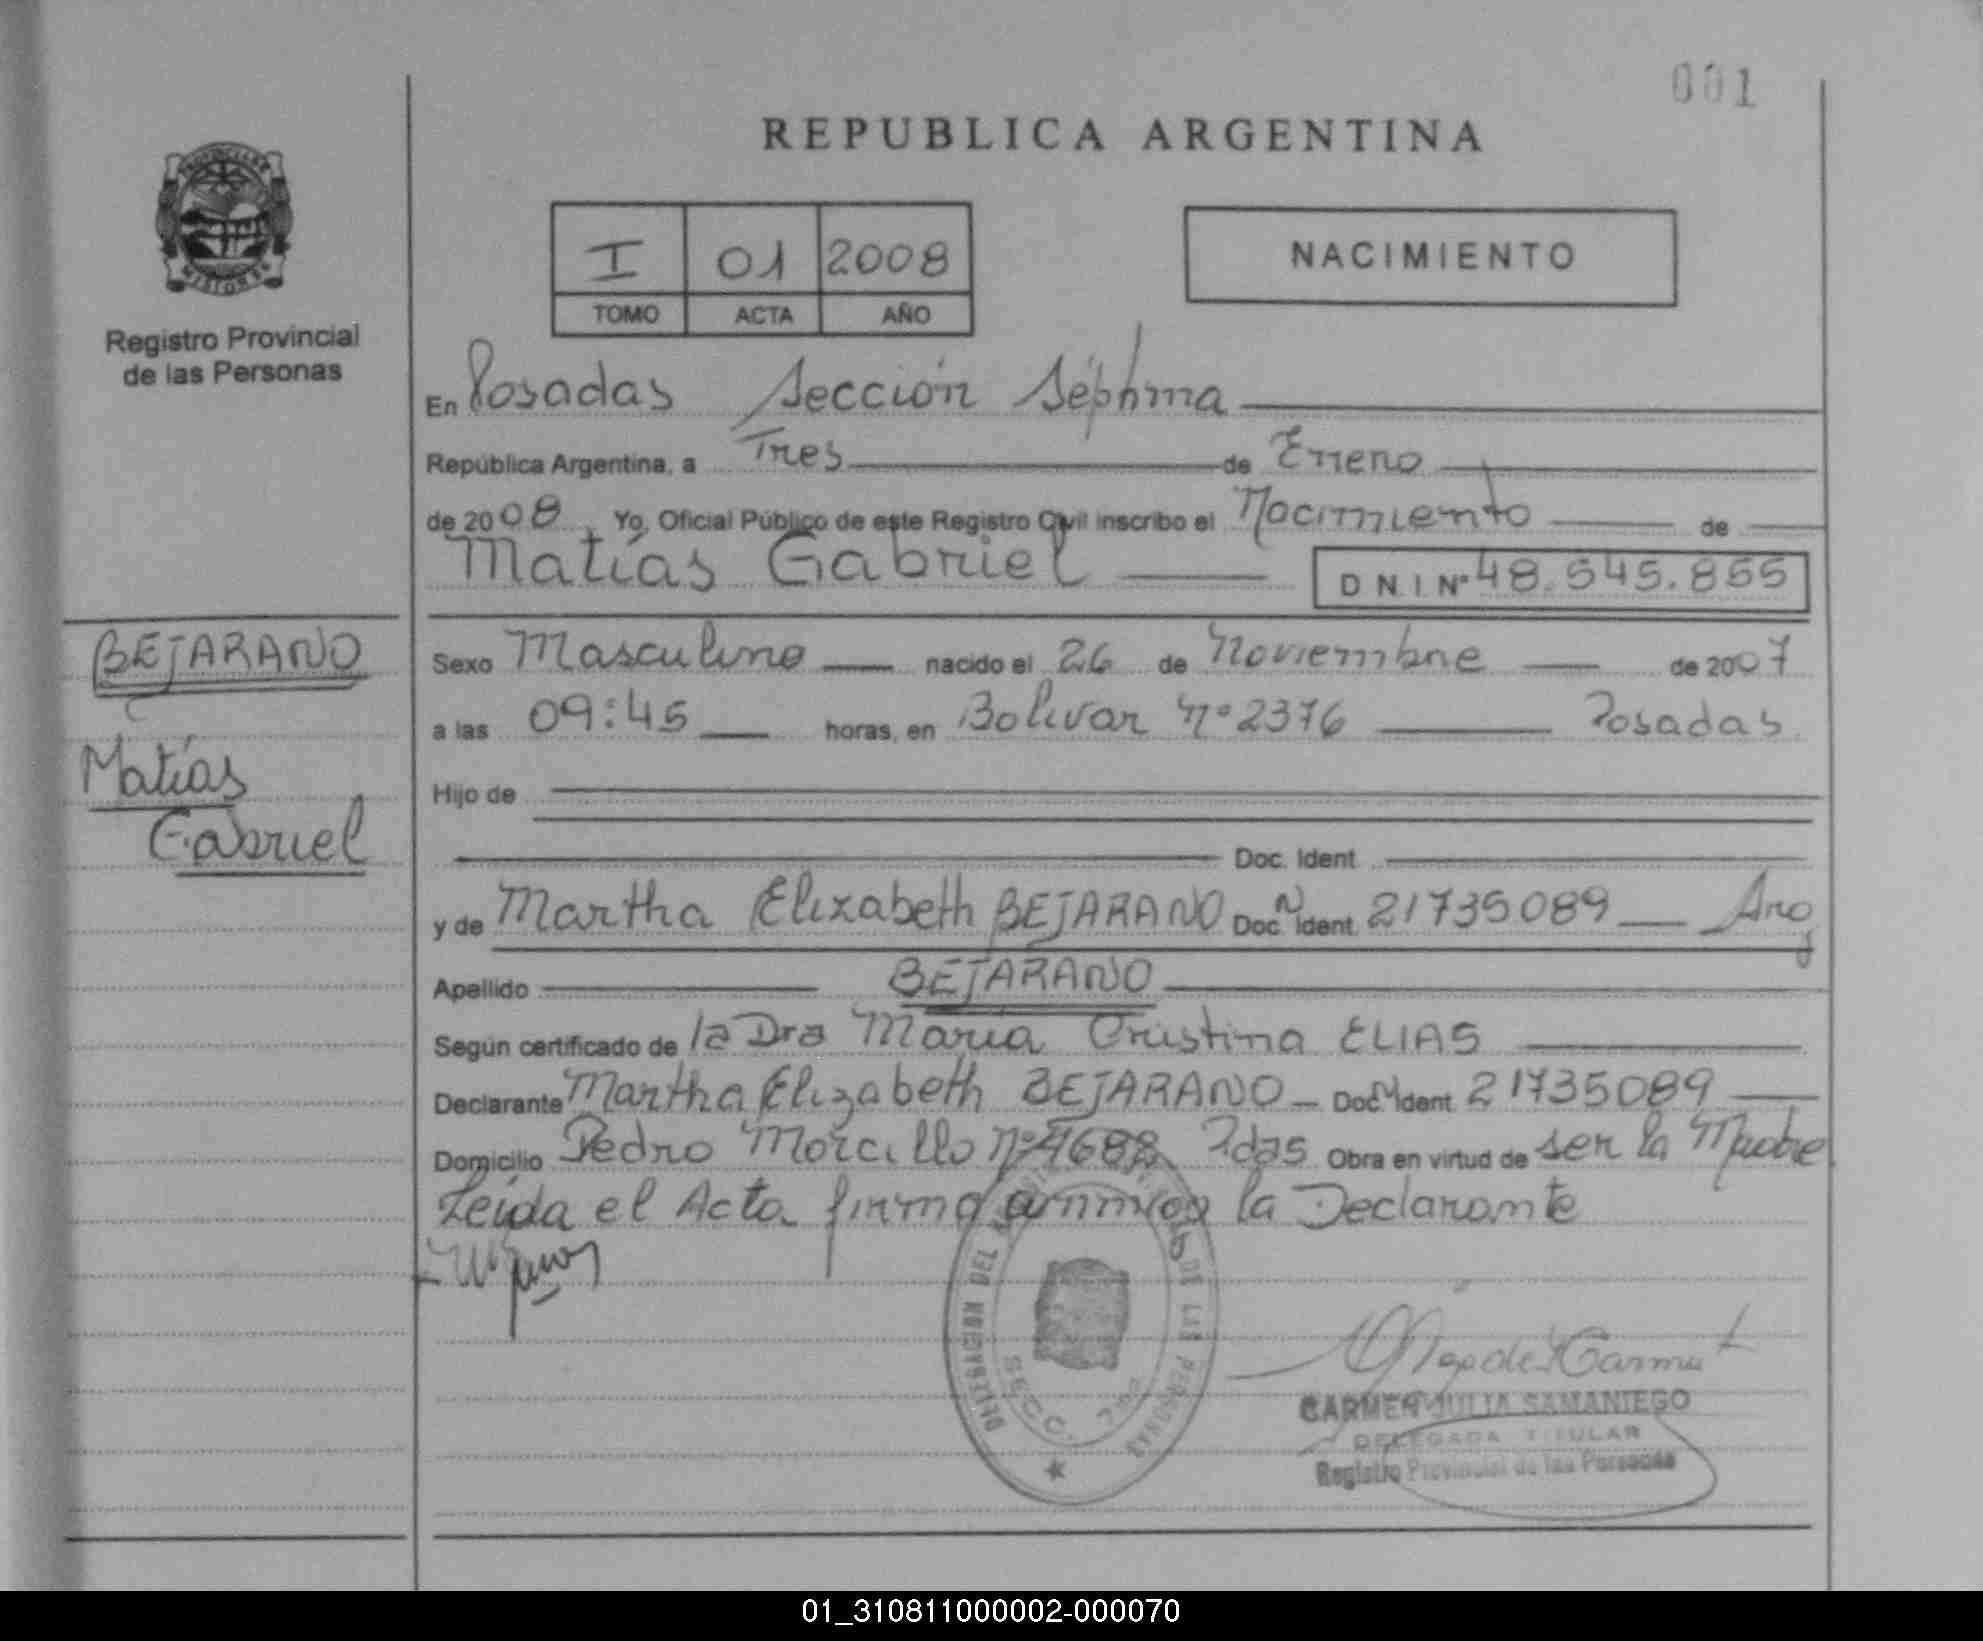 001
REPUBLICA ARGENTINA
I 01 2008
TOMO ACTA AÑO
NACIMIENTO
Registro Provincial
de las Personas
En Posadas Sección Séptima
República Argentina, a Tres de Enero
de 2008, Yo, Oficial Público de este Registro Civil inscribo el Nacimiento de
Matías Gabriel D N.I. Nº 48.545.855
BEJARANO
Matías
Gabriel
Sexo Masculino nacido el 26 de Noviembre de 2007
a las 09:45 horas, en Bolivar Nº 2376 Posadas
Hijo de
Doc. Ident
y de Martha Elizabeth BEJARANO Doc. N Ident 21735089 Arg
Apellido BEJARANO
Según certificado de la Dra María Cristina ELIAS
Declarante Martha Elizabeth BEJARANO Doc N Ident 21735089
Domicilio Pedro Morcillo Nº 4682 Pdas Obra en virtud de ser la Madre
Leida el Acta firma conmigo la Declarante
DELEGACION DEL DE LAS PERSONAS
SECC. 7ma
CARMEN JULIA SAMANIEGO
DELEGADA TITULAR
Registro Provincial de las Personas
01_310811000002-000070